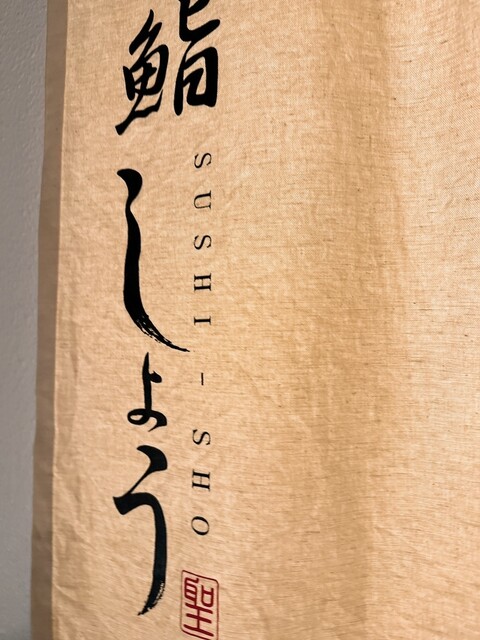 鮨しょう
SUSHI-SHO
聖